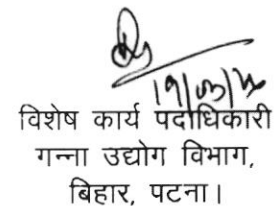 विशेष कार्य पदाधिकारी
गन्ना उद्योग विभाग,
बिहार, पटना।